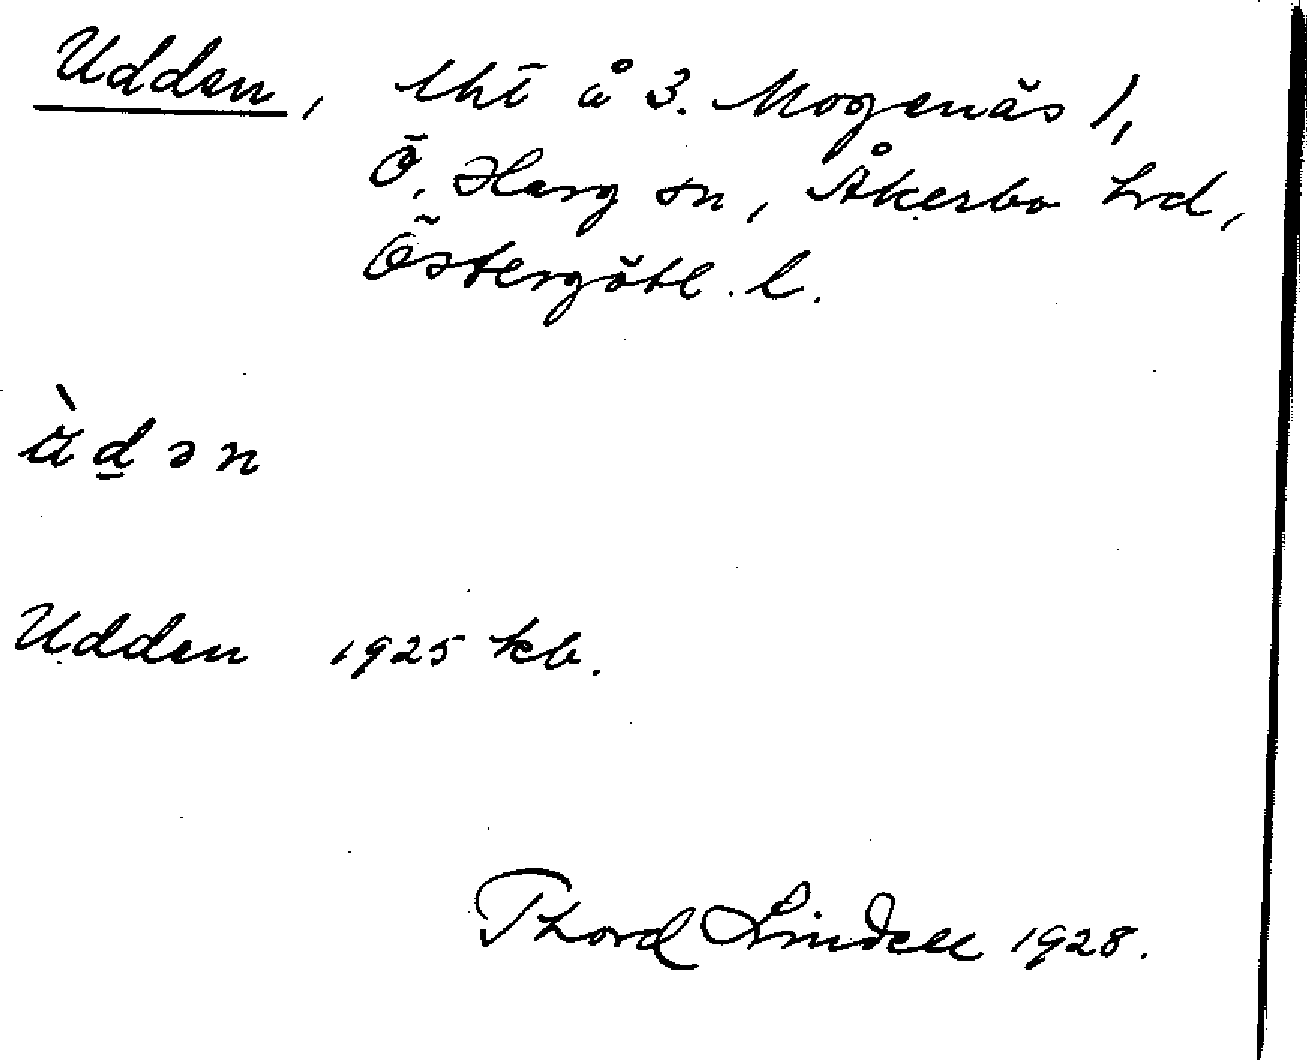 Udden, lht å 3. Mogenäs 1,
Ö. Harg sn, Åkerbo hrd,
Östergötl. l.
ù̈d̠ən
Udden 1925 kb.
Thord Lindell 1928.